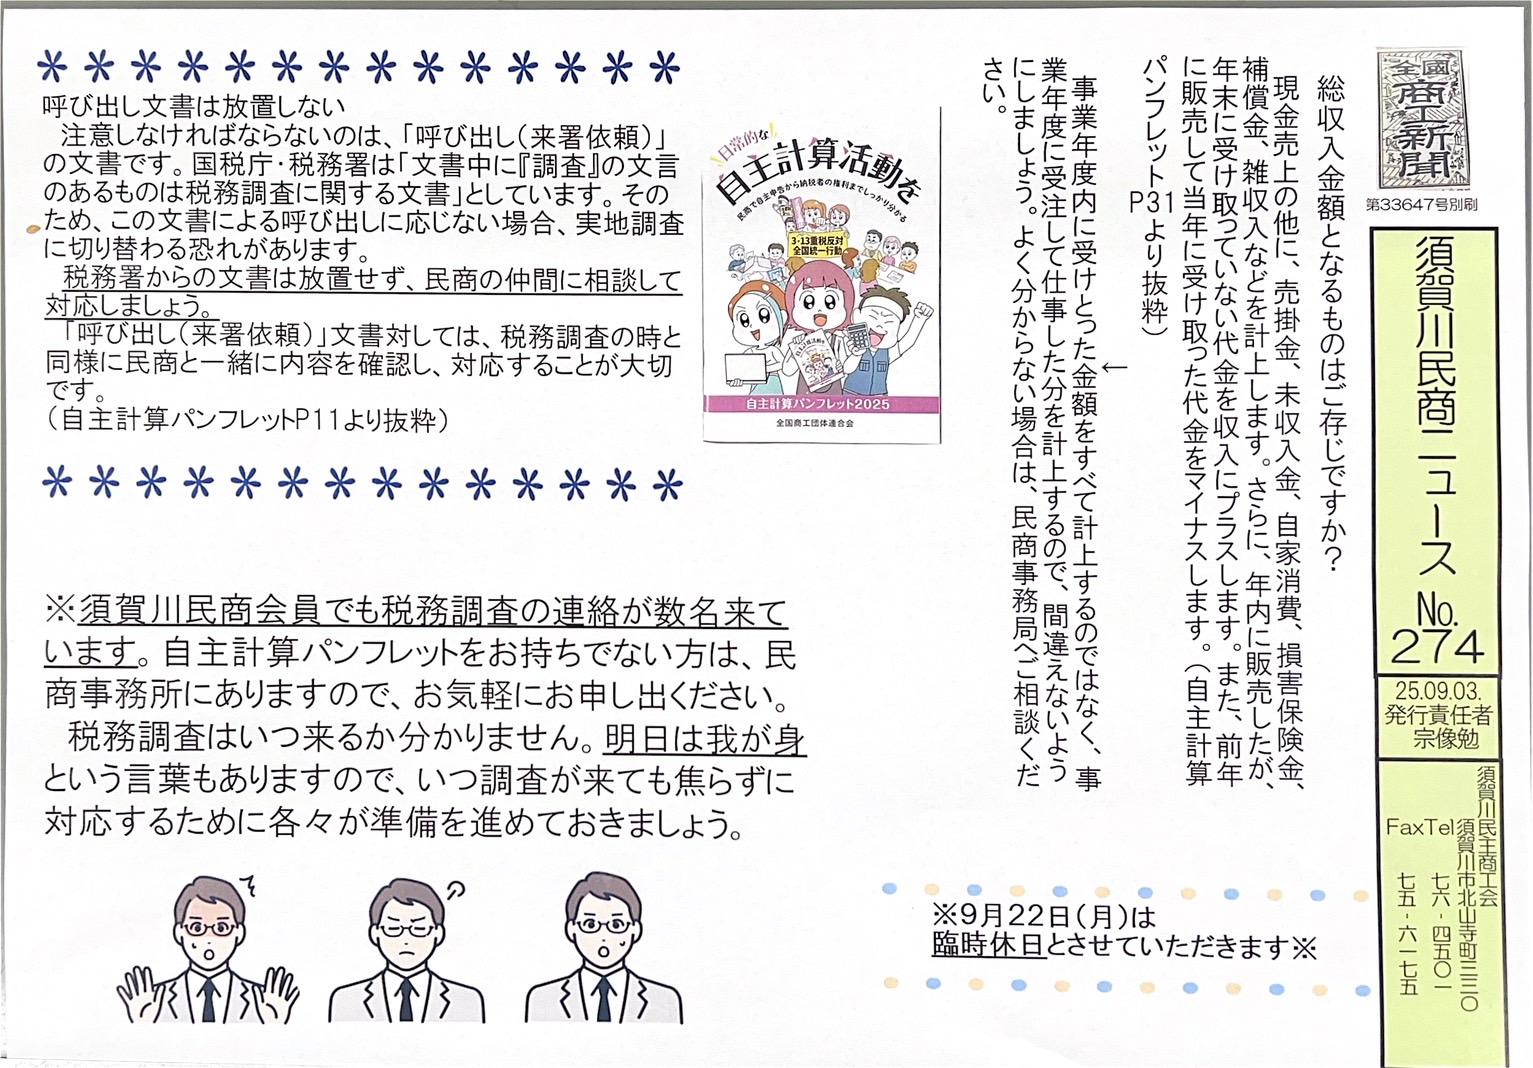 全國
商工新聞
第33647号別刷
須賀川民商ニュース No.274
25.09.03.
発行責任者
宗像勉
須賀川民主商工会
須賀川市北山寺町三三〇
Tel 七六-四五〇一
Fax 七五-六一七五
総収入金額となるものはご存じですか？
現金売上の他に、売掛金、未収入金、自家消費、損害保険金、
補償金、雑収入などを計上します。さらに、年内に販売したが、
年末に受け取っていない代金を収入にプラスします。また、前年
に販売して当年に受け取った代金をマイナスします。（自主計算
パンフレットP31より抜粋）
←
事業年度内に受けとった金額をすべて計上するのではなく、事
業年度に受注して仕事した分を計上するので、間違えないよう
にしましょう。よく分からない場合は、民商事務局へご相談くだ
さい。
日常的な
自主計算活動を
民商で自主申告から納税者の権利までしっかり分かる
3・13重税反対
全国統一行動
自主計算パンフレット2025
全国商工団体連合会
＊＊＊＊＊＊＊＊＊＊＊＊＊＊
呼び出し文書は放置しない
注意しなければならないのは、「呼び出し（来署依頼）」
の文書です。国税庁・税務署は「文書中に『調査』の文言
のあるものは税務調査に関する文書」としています。その
ため、この文書による呼び出しに応じない場合、実地調査
に切り替わる恐れがあります。
税務署からの文書は放置せず、民商の仲間に相談して
対応しましょう。
「呼び出し（来署依頼）」文書対しては、税務調査の時と
同様に民商と一緒に内容を確認し、対応することが大切
です。
（自主計算パンフレットP11より抜粋）
＊＊＊＊＊＊＊＊＊＊＊＊＊＊
※須賀川民商会員でも税務調査の連絡が数名来て
います。自主計算パンフレットをお持ちでない方は、民
商事務所にありますので、お気軽にお申し出ください。
税務調査はいつ来るか分かりません。明日は我が身
という言葉もありますので、いつ調査が来ても焦らずに
対応するために各々が準備を進めておきましょう。
※9月22日（月）は
臨時休日とさせていただきます※